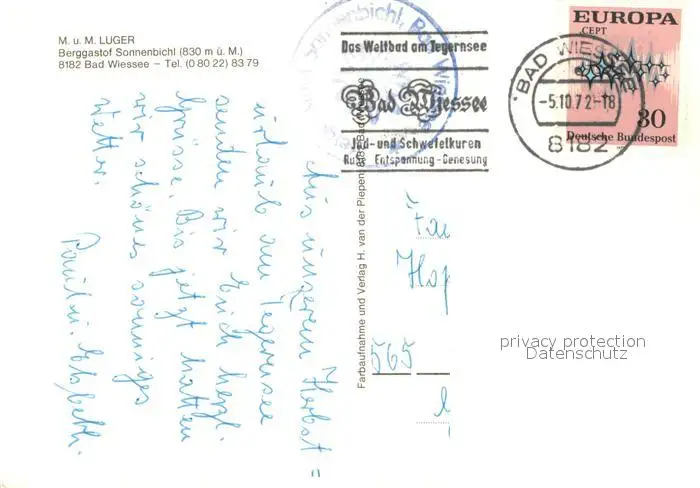 M. u. M. LUGER
Berggasthof Sonnenbichl (830 m ü. M.)
8182 Bad Wiessee – Tel. (0 80 22) 83 79
Sonnenbichl, Bad Wiessee
Das Weltbad am Tegernsee
Bad Wiessee
Jod- und Schwefelkuren
Ruhe Entspannung-Genesung
BAD WIESSEE
-5.10.72-18
8182
EUROPA
CEPT
30
Deutsche Bundespost
Aus unserem Herbst=
urlaub am Tegernsee
senden wir Euch herzl.
Grüsse. Bis jetzt hatten
wir schönes sonniges
Wetter.
Farbaufnahme und Verlag H. van der Piepen, 8182 Bad Wiessee
Fa
Ho
565
privacy protection
Datenschutz